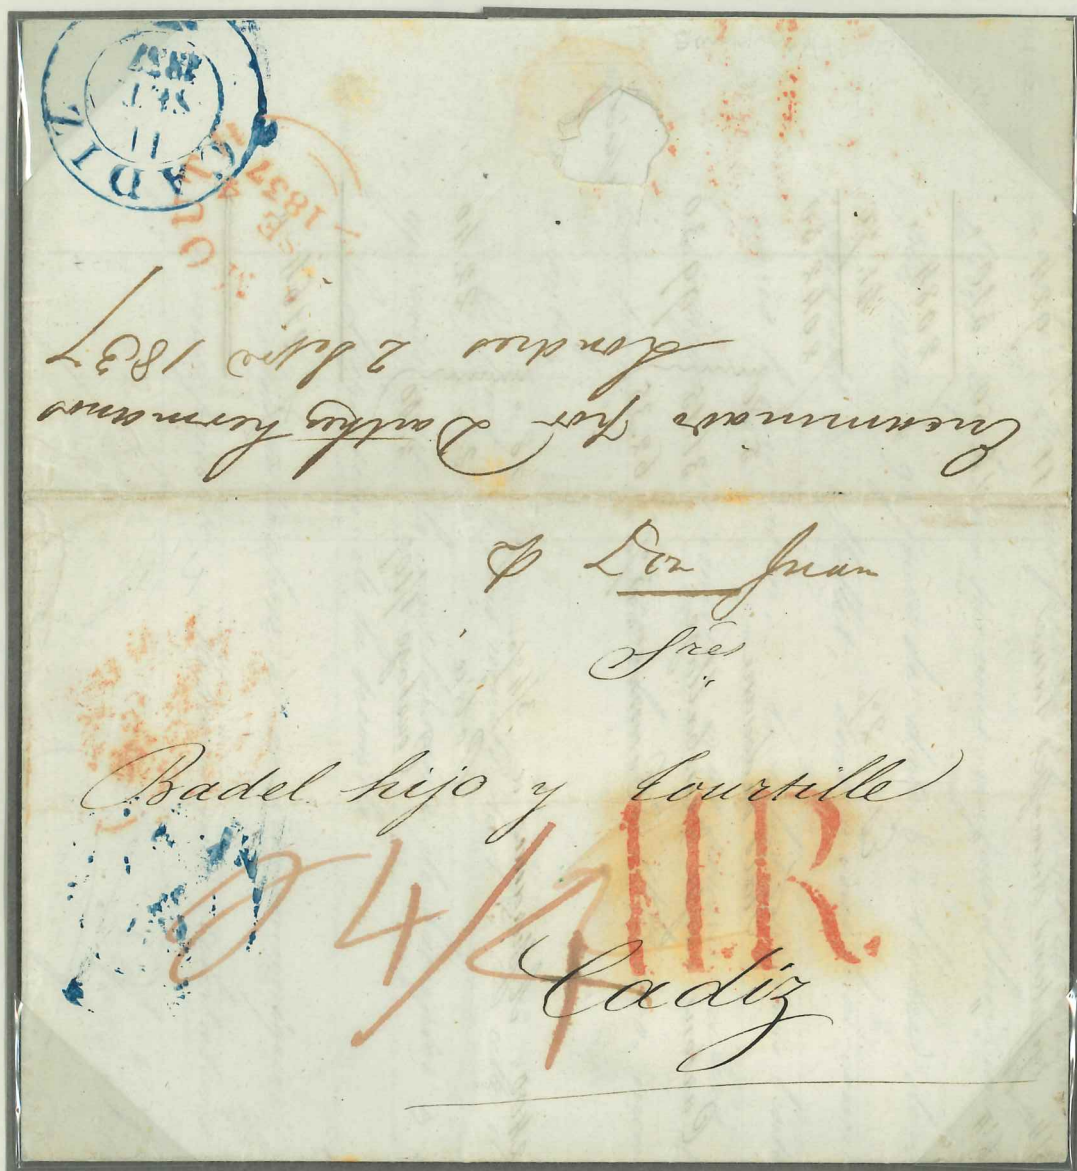 CADIZ
11
SET
1837
4 SE
1837
Encaminada por Dauthez hermanos
Londres 2 Sepre 1837
Dn Juan
Sres
Badel hijo y Courtille
24/4
N.R.
Cadiz